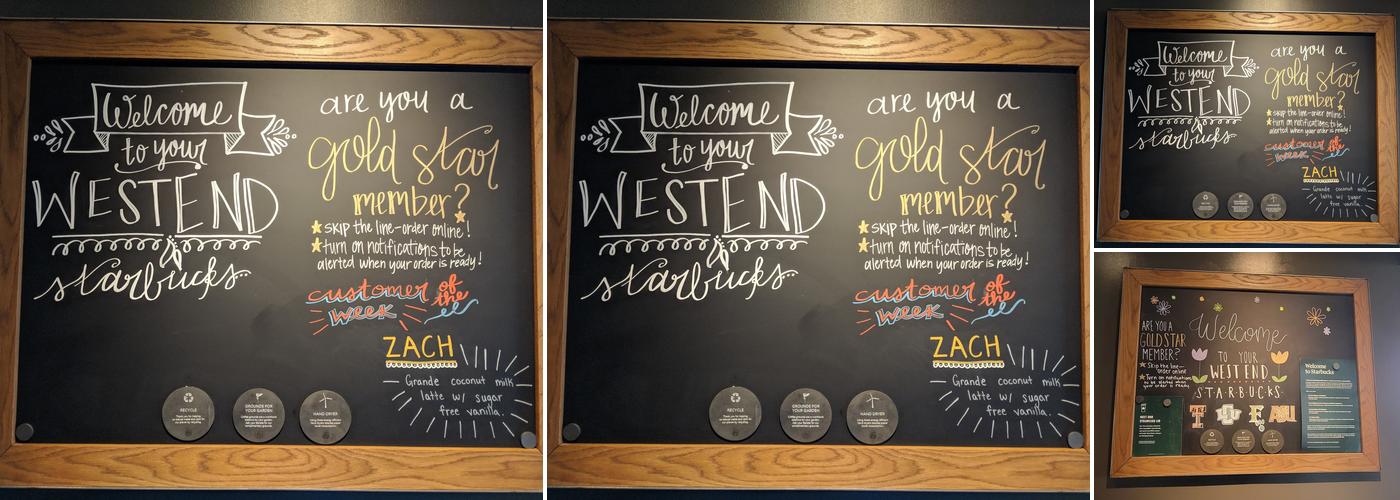 Welcome
to your
WESTEND
starbucks
are you a
gold star
member?
skip the line-order online!
turn on notifications to be
alerted when your order is ready!
customer of the
week
ZACH
Grande coconut milk
latte w/ sugar
free vanilla.
RECYCLE
GROUNDS FOR
YOUR GARDEN
HAND DRYER
Welcome
to your
WESTEND
starbucks
are you a
gold star
member?
skip the line-order online!
turn on notifications to be
alerted when your order is ready!
customer of the
week
ZACH
Grande coconut milk
latte w/ sugar
free vanilla.
RECYCLE
GROUNDS FOR
YOUR GARDEN
HAND DRYER
Welcome
to your
WESTEND
starbucks
are you a
gold star
member?
skip the line-order online!
turn on notifications to be
alerted when your order is ready!
customer of the
week
ZACH
Grande coconut milk
latte w/ sugar
free vanilla.
ARE YOU A
GOLD STAR
MEMBER?
Skip the line-
order online
Turn on notifications
to be alerted when
your order is ready
Welcome
TO YOUR
WESTEND
STARBUCKS
Welcome
to Starbucks